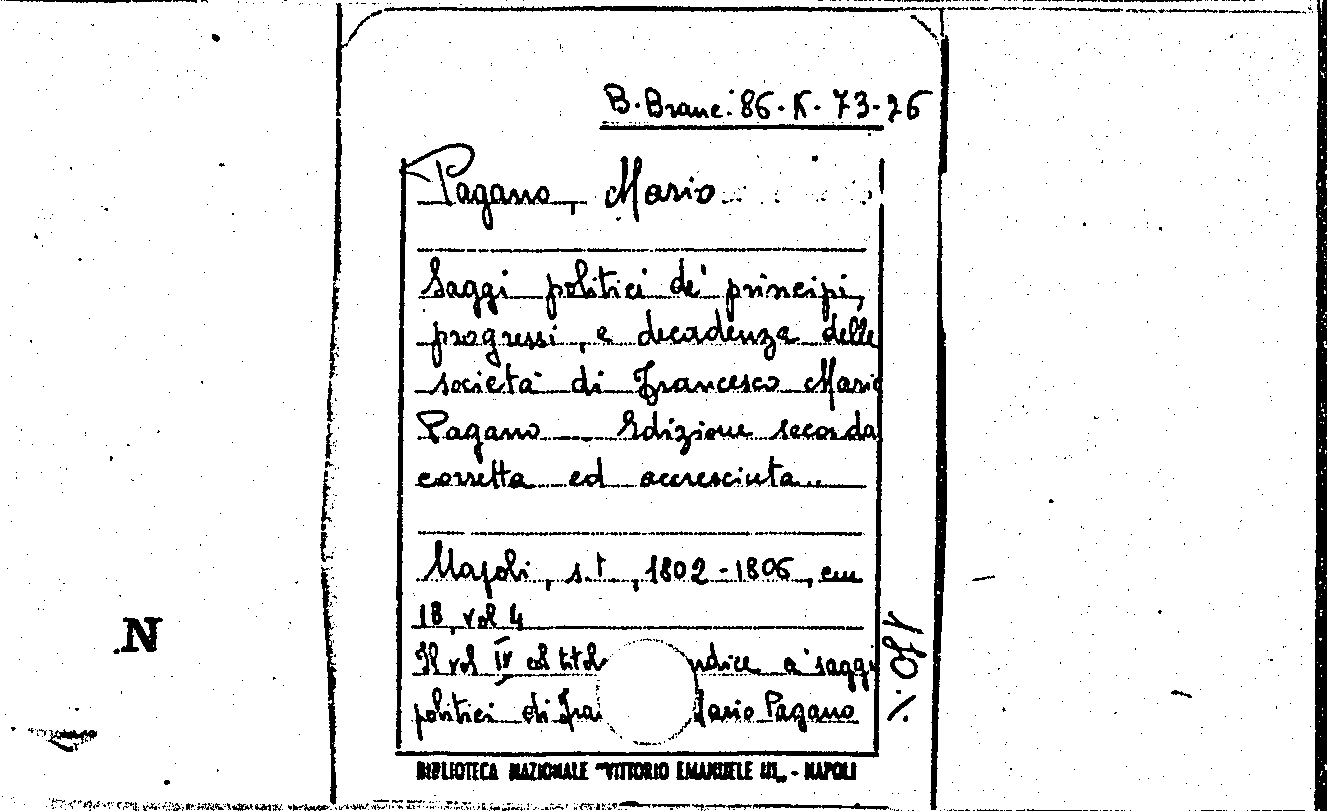 B. Branc. 86-K-73-26
Pagano, Mario
Saggi politici de' principi,
progressi, e decadenza delle
società di Francesco Mario
Pagano Edizione seconda
corretta ed accresciuta..
Napoli, s.t., 1802-1806, in
18, vol 4
Il vol IV col titolo ndice a' saggi
politici di Fra ario Pagano
./.
BIBLIOTECA NAZIONALE "VITTORIO EMANUELE III" - NAPOLI
N